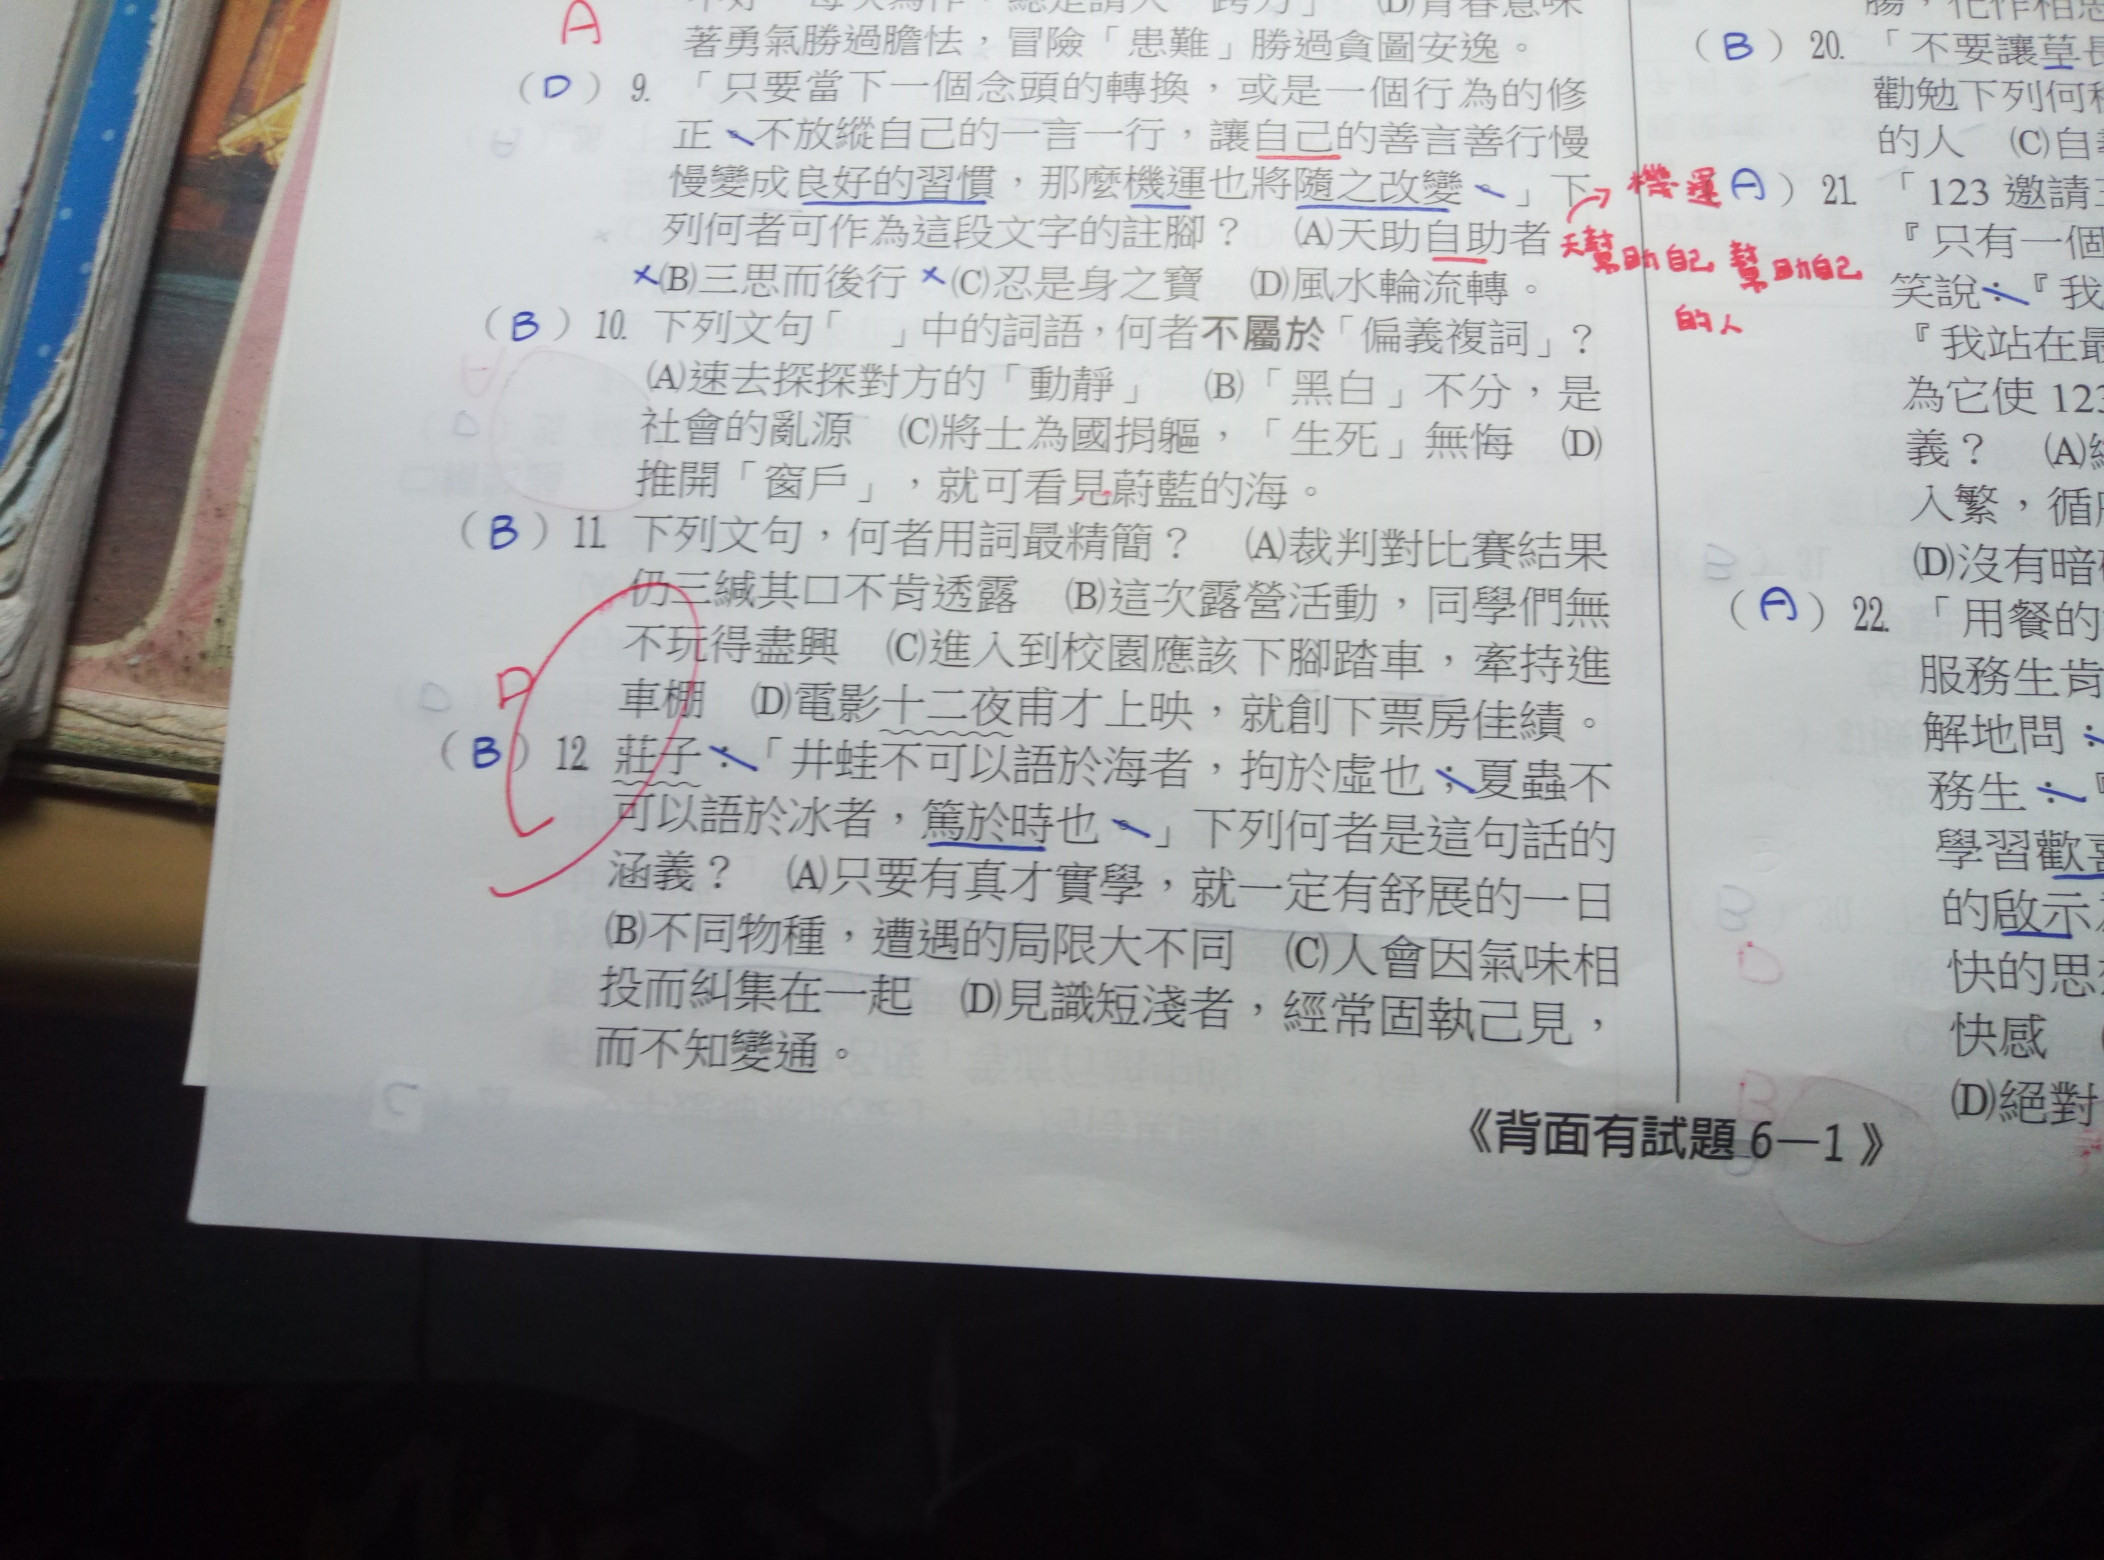 A
著勇氣勝過膽怯，冒險「患難」勝過貪圖安逸。
(D) 9. 「只要當下一個念頭的轉換，或是一個行為的修
正。不放縱自己的一言一行，讓自己的善言善行慢
慢變成良好的習慣，那麼機運也將隨之改變。」下
列何者可作為這段文字的註腳？ (A)天助自助者
×(B)三思而後行 ×(C)忍是身之寶 (D)風水輪流轉。
機運
天幫助自己幫助自己
的人
(B) 10. 下列文句「 」中的詞語，何者不屬於「偏義複詞」？
(A)速去探探對方的「動靜」 (B)「黑白」不分，是
社會的亂源 (C)將士為國捐軀，「生死」無悔 (D)
推開「窗戶」，就可看見蔚藍的海。
(B) 11. 下列文句，何者用詞最精簡？ (A)裁判對比賽結果
仍三緘其口不肯透露 (B)這次露營活動，同學們無
不玩得盡興 (C)進入到校園應該下腳踏車，牽持進
車棚 (D)電影十二夜甫才上映，就創下票房佳績。
(B) 12. 莊子：「井蛙不可以語於海者，拘於虛也；夏蟲不
可以語於冰者，篤於時也。」下列何者是這句話的
涵義？ (A)只要有真才實學，就一定有舒展的一日
(B)不同物種，遭遇的局限大不同 (C)人會因氣味相
投而糾集在一起 (D)見識短淺者，經常固執己見，
而不知變通。
D
(B) 20. 「不要讓草長
勸勉下列何種
的人 (C)自
(A) 21. 「123 邀請
『只有一個
笑說：『我
『我站在最
為它使 123
義？ (A)
入繁，循
(D)沒有暗
(A) 22. 「用餐的
服務生肯
解地問：
務生：『
學習歡喜
的啟示
快的思
快感
(D)絕對
《背面有試題 6－1》